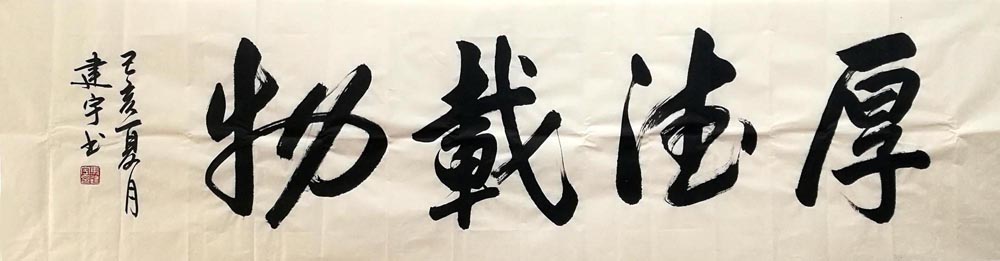 厚德載物
己亥夏月
建宇书